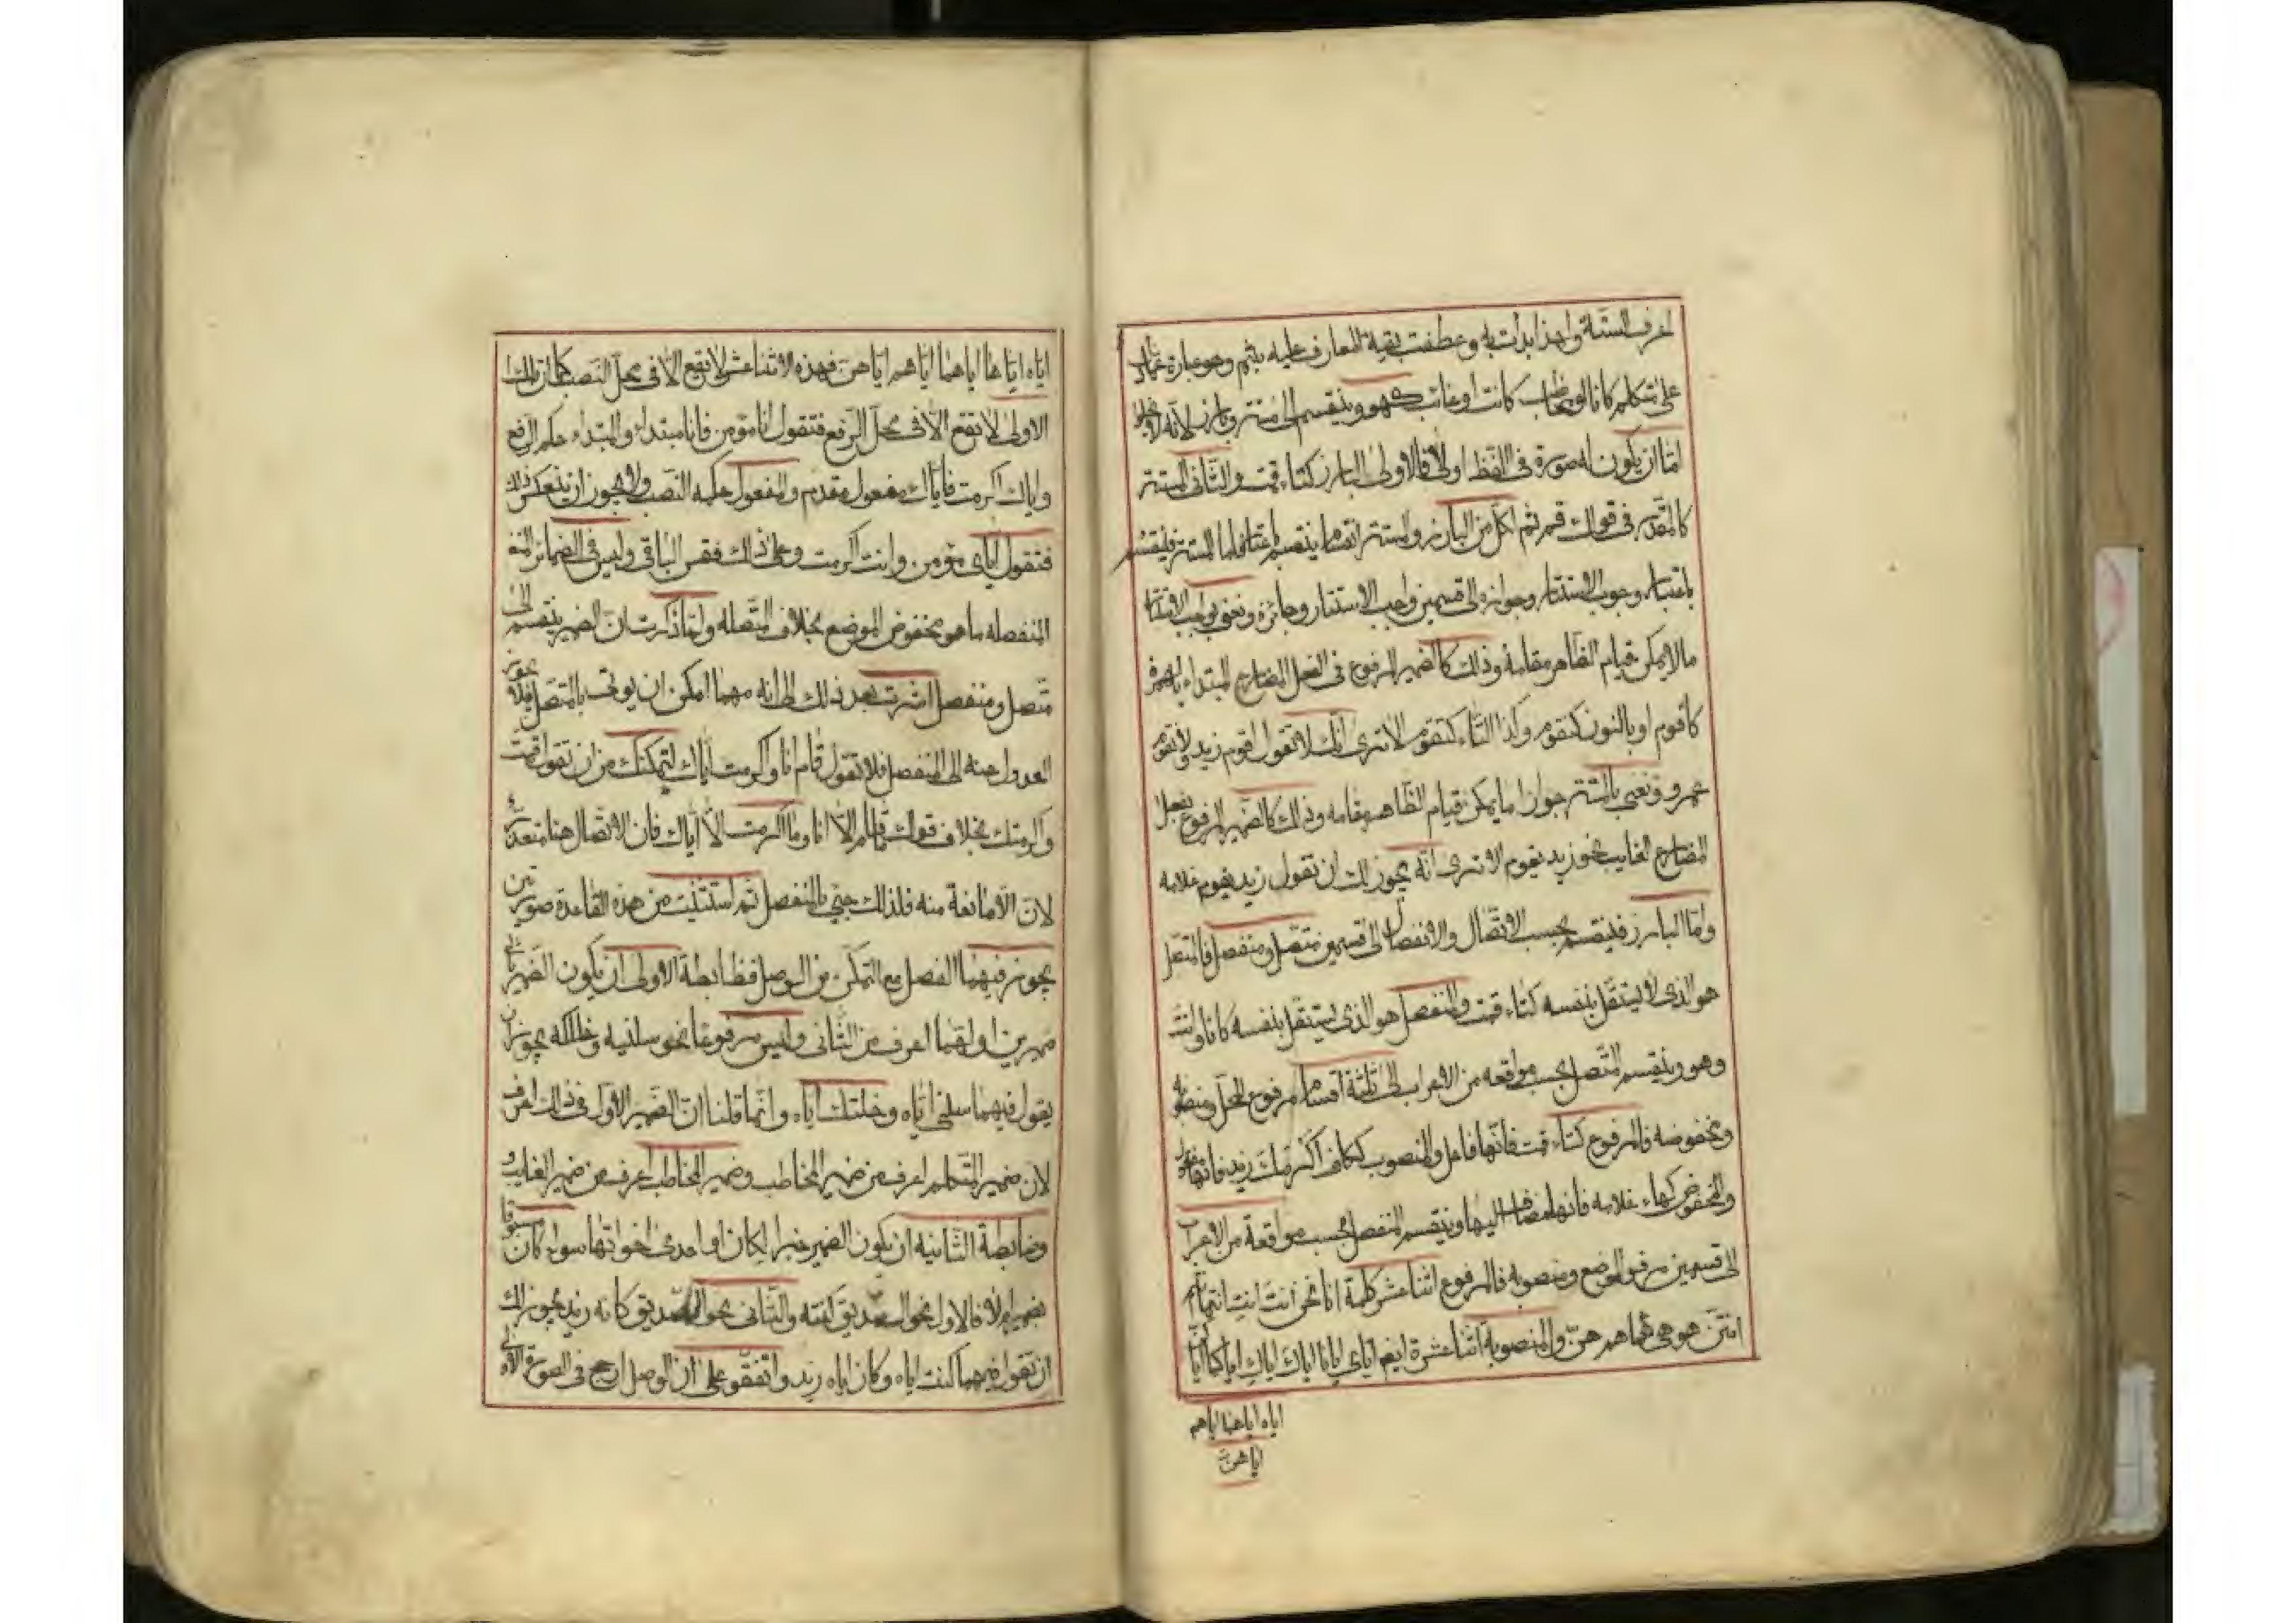 اعرف الستة ولهذا بدأت به وعطفت بقية المعارف عليه بثم وهو عبارة عما دل
على متكلم كانا او مخاطب كانت او غائب كهو وينقسم الى مستتر وبارز لانه لا يخلو
اما ان يكون له صورة فى اللفظ اولا فالاولى البارز كتاء قمت والثانى المستتر
كالمقدر فى قولك قم ثم لكل من البارز والمستتر انقسام باعتبار فاما المستتر فينقسم
باعتبار وجوب الاستتار وجوازه الى قسمين واجب الاستتار وجائزه ونعنى بواجب الاستتار
ما لا يمكن قيام الظاهر مقامه وذلك كالضمير المرفوع فى الفعل المضارع المبتداء بالهمزة
كاقوم او بالنون كنقوم وكذا التاء كتقوم الا ترى انك لا تقول اقوم زيد ولا نقوم
عمرو ونعنى بالمستتر جوازا ما يمكن قيام الظاهر مقامه وذلك كالضمير المرفوع بفعل
المضارع الغايب نحو زيد يقوم الا ترى انه يجوز لك ان تقول زيد يقوم غلامه
واما البارز فينقسم بحسب الاتصال والانفصال الى قسمين متصل ومنفصل فالمتصل
هو الذى لا يستقل بنفسه كتاء قمت والمنفصل هو الذى يستقل بنفسه كانا وانت
وهو وينقسم المتصل بحسب مواقعه من الاعراب الى ثلثة اقسام مرفوع المحل ومنصوبه
ومخفوضه فالمرفوع كتاء قمت فانها فاعل والمنصوب ككاف اكرمك زيد فانها مفعول
والمخفوض كهاء غلامه فانها مضاف اليها وينقسم المنفصل بحسب مواقعة من الاعراب
الى قسمين مرفوع الموضع ومنصوبه فالمرفوع اثنا عشر كلمة انا نحن انت انت انتما انتم
انتن هو هى هما هم هن والمنصوبة اثنا عشرة ايضا اياى ايانا اياك اياك اياكما
اياه اياها اياهم
اياهن
اياه اياها اياهما اياهم اياهن فهذه الاثنا عشر لا تقع الا فى محل النصب كما ان تلك
الاولى لا تقع الا فى محل الرفع فتقول انا مؤمن فانا مبتداء والمبتداء حكم الرفع
واياك اكرمت فاياك مفعول مقدم والمفعول حكمه النصب ولا يجوز ان ينعكس ذلك
فتقول اياى مؤمن وانت اكرمت وعلى ذلك فقس الباقى وليس فى الضمائر
المنفصله ما هو مخفوض الموضع بخلاف المتصله ولما ذكرت ان الضمير ينقسم الى
متصل ومنفصل اشرت بعد ذلك الى انه مهما امكن ان يوتى بالمتصل فلا يجوز
العدول عنه الى المنفصل فلا تقول قام انا واكرمت اياك لتمكنك من ان تقول قمت
واكرمتك بخلاف قولك ما قام الا انا وما اكرمت الا اياك فان الاتصال هنا متعذر
لان الا مانعة منه فلذلك جيئ بالمنفصل ثم استثنيت من هذه القاعدة صورتين
يجوز فيهما الفصل مع التمكن من الوصل فظابطة الاولى ان يكون الضمير ثانى
ضميرين اولهما اعرف من الثانى وليس مرفوعا نحو سلنيه وخلتكه يجوز ان
يقول فيهما سلنى اياه وخلتك اياه وانما قلنا ان الضمير الاول فى ذلك اعرف
لان ضمير المتكلم اعرف من ضمير المخاطب وضمير المخاطب اعرف من ضمير الغايب
وضابطة الثانيه ان يكون الضمير خبرا لكان او احدى اخواتها سواء كان مسبوقا
بضمير ام لا فالاول نحو الصديق كنته والثانى نحو الصديق كانه زيد يجوز لك
ان تقول فيهما كنت اياه وكان اياه زيد واتفقوا على ان الوصل ارجح فى الصورة الاولى